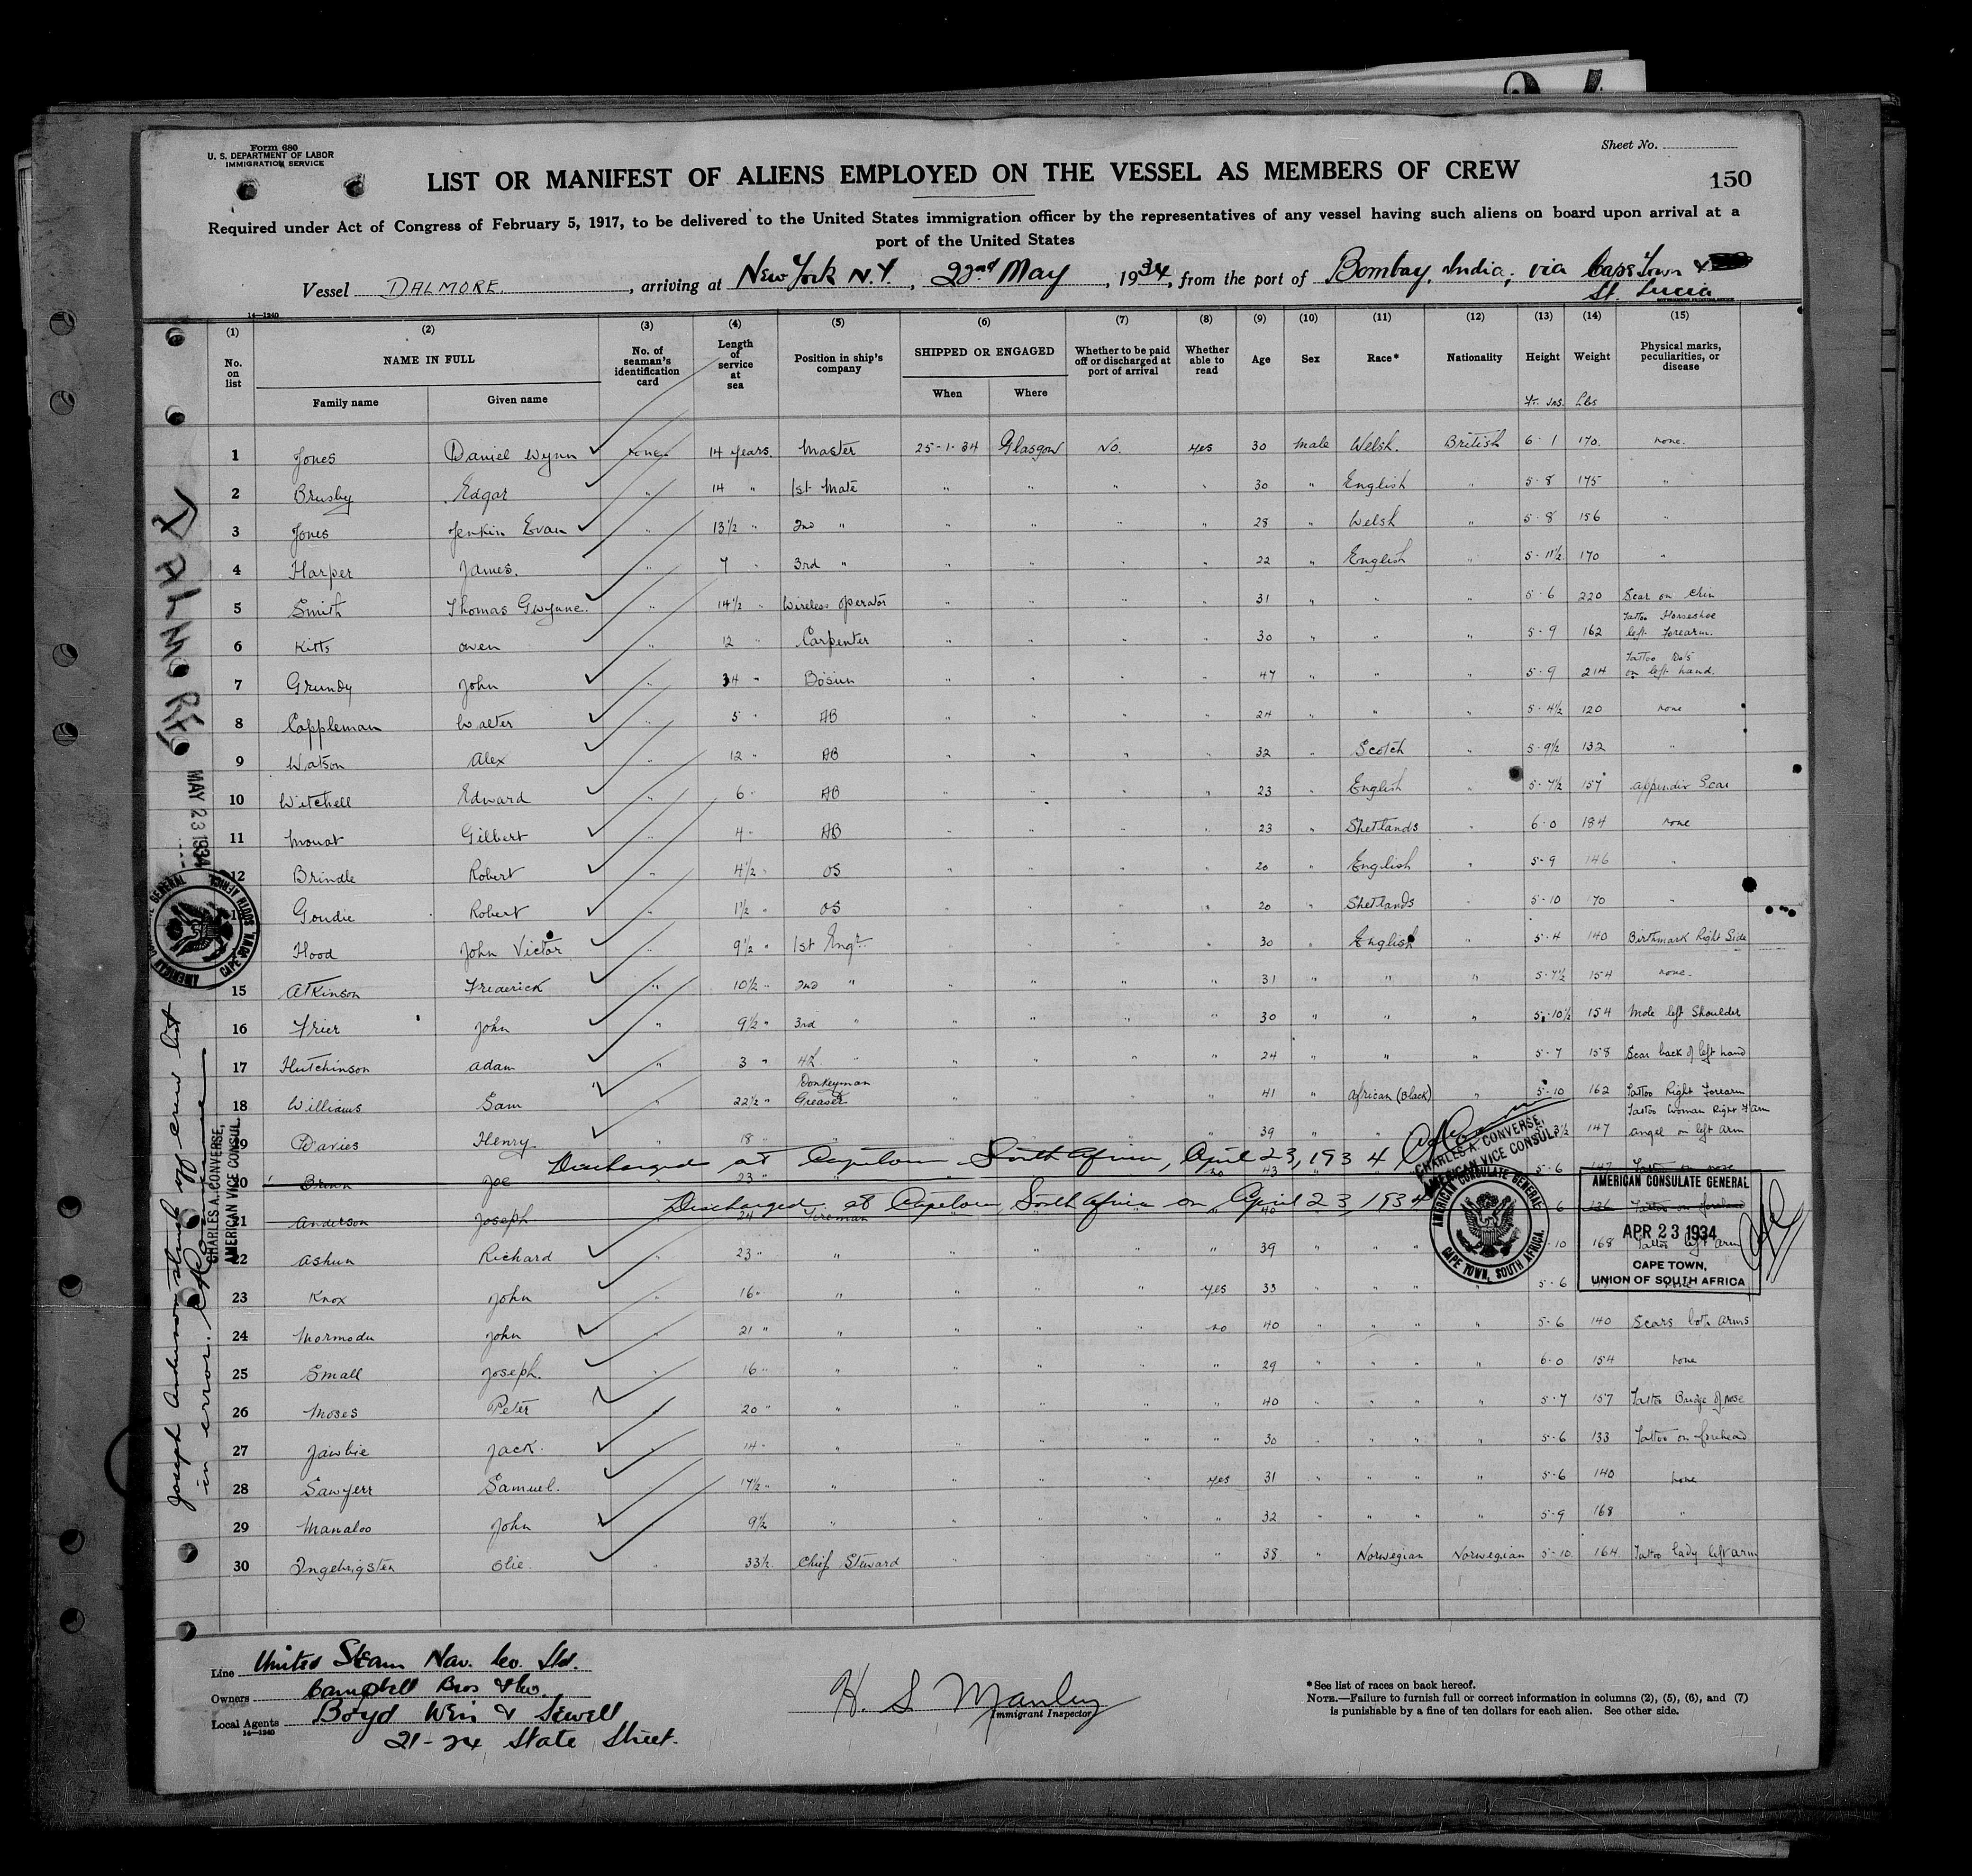 Form 680
U. S. DEPARTMENT OF LABOR
IMMIGRATION SERVICE
Sheet No.
LIST OR MANIFEST OF ALIENS EMPLOYED ON THE VESSEL AS MEMBERS OF CREW
150
Required under Act of Congress of February 5, 1917, to be delivered to the United States immigration officer by the representatives of any vessel having such aliens on board upon arrival at a
port of the United States
Vessel DALMORE, arriving at New York N.Y., 22nd May, 1934, from the port of Bombay, India, via Cape Town &
St. Lucia
14—1240
(1) (2) (3) (4) (5) (6) (7) (8) (9) (10) (11) (12) (13) (14) (15)
No. on list NAME IN FULL No. of seaman's identification card Length of service at sea Position in ship's company SHIPPED OR ENGAGED Whether to be paid off or discharged at port of arrival Whether able to read Age Sex Race* Nationality Height Weight Physical marks, peculiarities, or disease
Family name Given name When Where Ft. Ins. Lbs
1 Jones Daniel Wynn None 14 years. Master 25-1-34 Glasgow No. yes 30 Male Welsh. British 6-1 170. none.
2 Brusby Edgar " 14 " 1st Mate " " " " 30 " English " 5-8 175 "
3 Jones Jenkin Evan " 13½ " 2nd " " " " " 28 " Welsh " 5-8 156 "
4 Harper James. " 7 " 3rd " " " " " 22 " English " 5-11½ 170 "
5 Smith Thomas Gwynne. " 14½ " Wireless operator " " " " 31 " " " 5-6 220 Scar on chin
6 Kitts Owen " 12 " Carpenter " " " " 30 " " " 5-9 162 Tattoo Horseshoe left Forearm.
7 Grundy John " 34 " Bosun " " " " 47 " " " 5-9 214 Tattoo on left hand.
8 Cappleman Walter " 5 " AB " " " " 24 " " " 5-4½ 120 none
9 Watson Alex " 12 " AB " " " " 32 " Scotch " 5-9½ 132 "
10 Witchell Edward " 6 " AB " " " " 23 " English " 5-7½ 157 appendix Scar
11 Mouat Gilbert " 4 " AB " " " " 23 " Shetlands " 6-0 184 none
12 Brindle Robert " 4½ " OS " " " " 20 " English " 5-9 146 "
Goudie Robert " 1½ " OS " " " " 20 " Shetlands " 5-10 170 "
Hood John Victor 9½ " 1st Engr " " " " 30 " English " 5-4 140 Birthmark Right Side
15 Atkinson Frederick " 10½ " 2nd " " " " " 31 " " " 5-7½ 154 none.
16 Frier John " 9½ " 3rd " " " " " 30 " " " 5-10½ 154 Mole left Shoulder
17 Hutchinson Adam " 3 " 4th " " " " " 24 " " " 5-7 158 Scar back of left hand
18 Williams Sam " 22½ " Donkeyman Greaser " " " " 41 " African (Black) " 5-10 162 Tattoo Right Forearm
19 Davies Henry 18 " " 39 " " 3½ 147 Tattoo Woman Right Arm angel on left arm
Discharged at Capetown South Africa, April 23, 1934
20 Brown Joe 23 " no 43 5-6 147 Tattoo on nose
Discharged at Capetown, South Africa on April 23 1934
21 Anderson Joseph 24 Fireman 40 6 136 Tattoo on forehead
22 Ashun Richard 23 " " " " " " 39 " " " 10 168 Tattoo left arm
23 Knox John " 16 " " " " " yes 33 " " " " 5-6
24 Mormodu John 21 " " " " " no 40 " " " " 5-6 140 Scars both arms
25 Small Joseph. " 16 " " " " " " 29 " " " " 6-0 154 none
26 Moses Peter " 20 " " " " " " 40 " " " " 5-7 157 Tattoo Bridge of nose
27 Jawbie Jack. " 14 " " " " " " 30 " " " " 5-6 133 Tattoo on forehead
28 Sawyerr Samuel. 17½ " " " " " yes 31 " " " " 5-6 140 none
29 Manaloo John 9½ " " " " " 32 " " " " 5-9 168 "
30 Ingebrigsten Olie. " 33½ Chief Steward " " " 38 " Norwegian Norwegian 5-10 164 Tattoo lady left arm
CHARLES A. CONVERSE,
AMERICAN VICE CONSUL.
AMERICAN CONSULATE GENERAL
CAPE TOWN, SOUTH AFRICA.
AMERICAN CONSULATE GENERAL
APR 23 1934
CAPE TOWN,
UNION OF SOUTH AFRICA
DALMORE
MAY 23 1934
AMERICAN CONSULATE GENERAL
CAPE TOWN, SOUTH AFRICA
Joseph Anderson struck off crew list
in error.
CHARLES A. CONVERSE,
AMERICAN VICE CONSUL.
Line United Steam Nav. Co. Ltd.
Owners Campbell Bros & Co.
Local Agents Boyd Weir & Sewell
14—1240
21-24 State Street.
H. S. Manley
Immigrant Inspector
*See list of races on back hereof.
NOTE.—Failure to furnish full or correct information in columns (2), (5), (6), and (7)
is punishable by a fine of ten dollars for each alien. See other side.